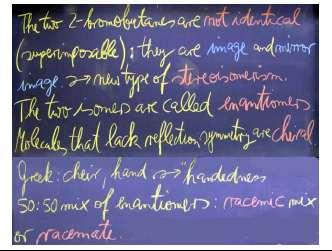 The two 2-bromobutanes are not identical
(superimposable): they are image and mirror
image. → new type of stereoisomerism.
The two isomers are called enantiomers
Molecules that lack reflection symmetry are chiral
Greek: cheir, hand → "handedness
50:50 mix of enantiomers: racemic mix
or racemate.